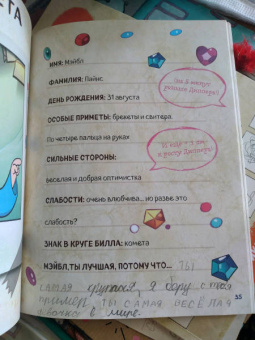 ИМЯ: Мэйбл
ФАМИЛИЯ: Пайнс
ДЕНЬ РОЖДЕНИЯ: 31 августа
ОСОБЫЕ ПРИМЕТЫ: брекеты и свитера.
По четыре пальца на руках
СИЛЬНЫЕ СТОРОНЫ:
веселая и добрая оптимистка
СЛАБОСТИ: очень влюбчива... но разве это
слабость?
ЗНАК В КРУГЕ БИЛЛА: комета
МЭЙБЛ, ТЫ ЛУЧШАЯ, ПОТОМУ ЧТО... ТЫ
САМАЯ крутая я беру с тебя
пример ТЫ САМАЯ ВЕСЁЛАЯ
в мире.
35
На 5 минут
раньше Диппера!